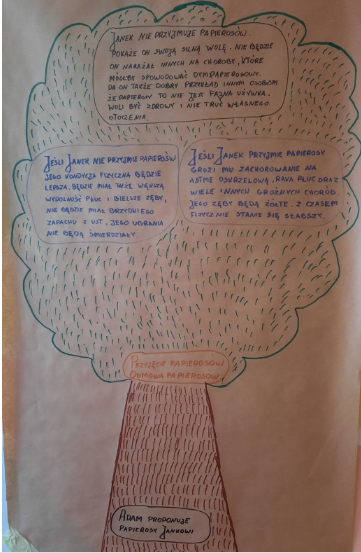 JANEK NIE PRZYJMUJE PAPIEROSÓW.
POKAŻE ON SWOJĄ SILNĄ WOLĘ. NIE BĘDZIE
ON NARAŻAŁ INNYCH NA CHOROBY, KTÓRE
MÓGŁBY SPOWODOWAĆ DYM PAPIEROSOWY.
DA ON TAKŻE DOBRY PRZYKŁAD INNYM OSOBOM
ŻE PAPIEROSY TO NIE JEST FAJNA UŻYWKA.
WOLI BYĆ ZDROWY I NIE TRUĆ WŁASNEGO
OTOCZENIA
JEŚLI JANEK NIE PRZYJMIE PAPIEROSÓW
JEGO KONDYCJA FIZYCZNA BĘDZIE
LEPSZA, BĘDZIE MIAŁ TAKŻE WIĘKSZĄ
WYDOLNOŚĆ PŁUC I BIELSZE ZĘBY,
NIE BĘDZIE MIAŁ BRZYDKIEGO
ZAPACHU Z UST. JEGO UBRANIA
NIE BĘDĄ ŚMIERDZIAŁY.
JEŚLI JANEK PRZYJMIE PAPIEROSY
GROZI MU ZACHOROWANIE NA
ASTMĘ OSKRZELOWĄ, RAKA PŁUC ORAZ
WIELE INNYCH GROŹNYCH CHORÓB.
JEGO ZĘBY BĘDĄ ŻÓŁTE. Z CZASEM
FIZYCZNIE STANIE SIĘ SŁABSZY.
PRZYJĘCIE PAPIEROSÓW
ODMOWA PAPIEROSÓW
ADAM PROPONUJE
PAPIEROSY JANKOWI